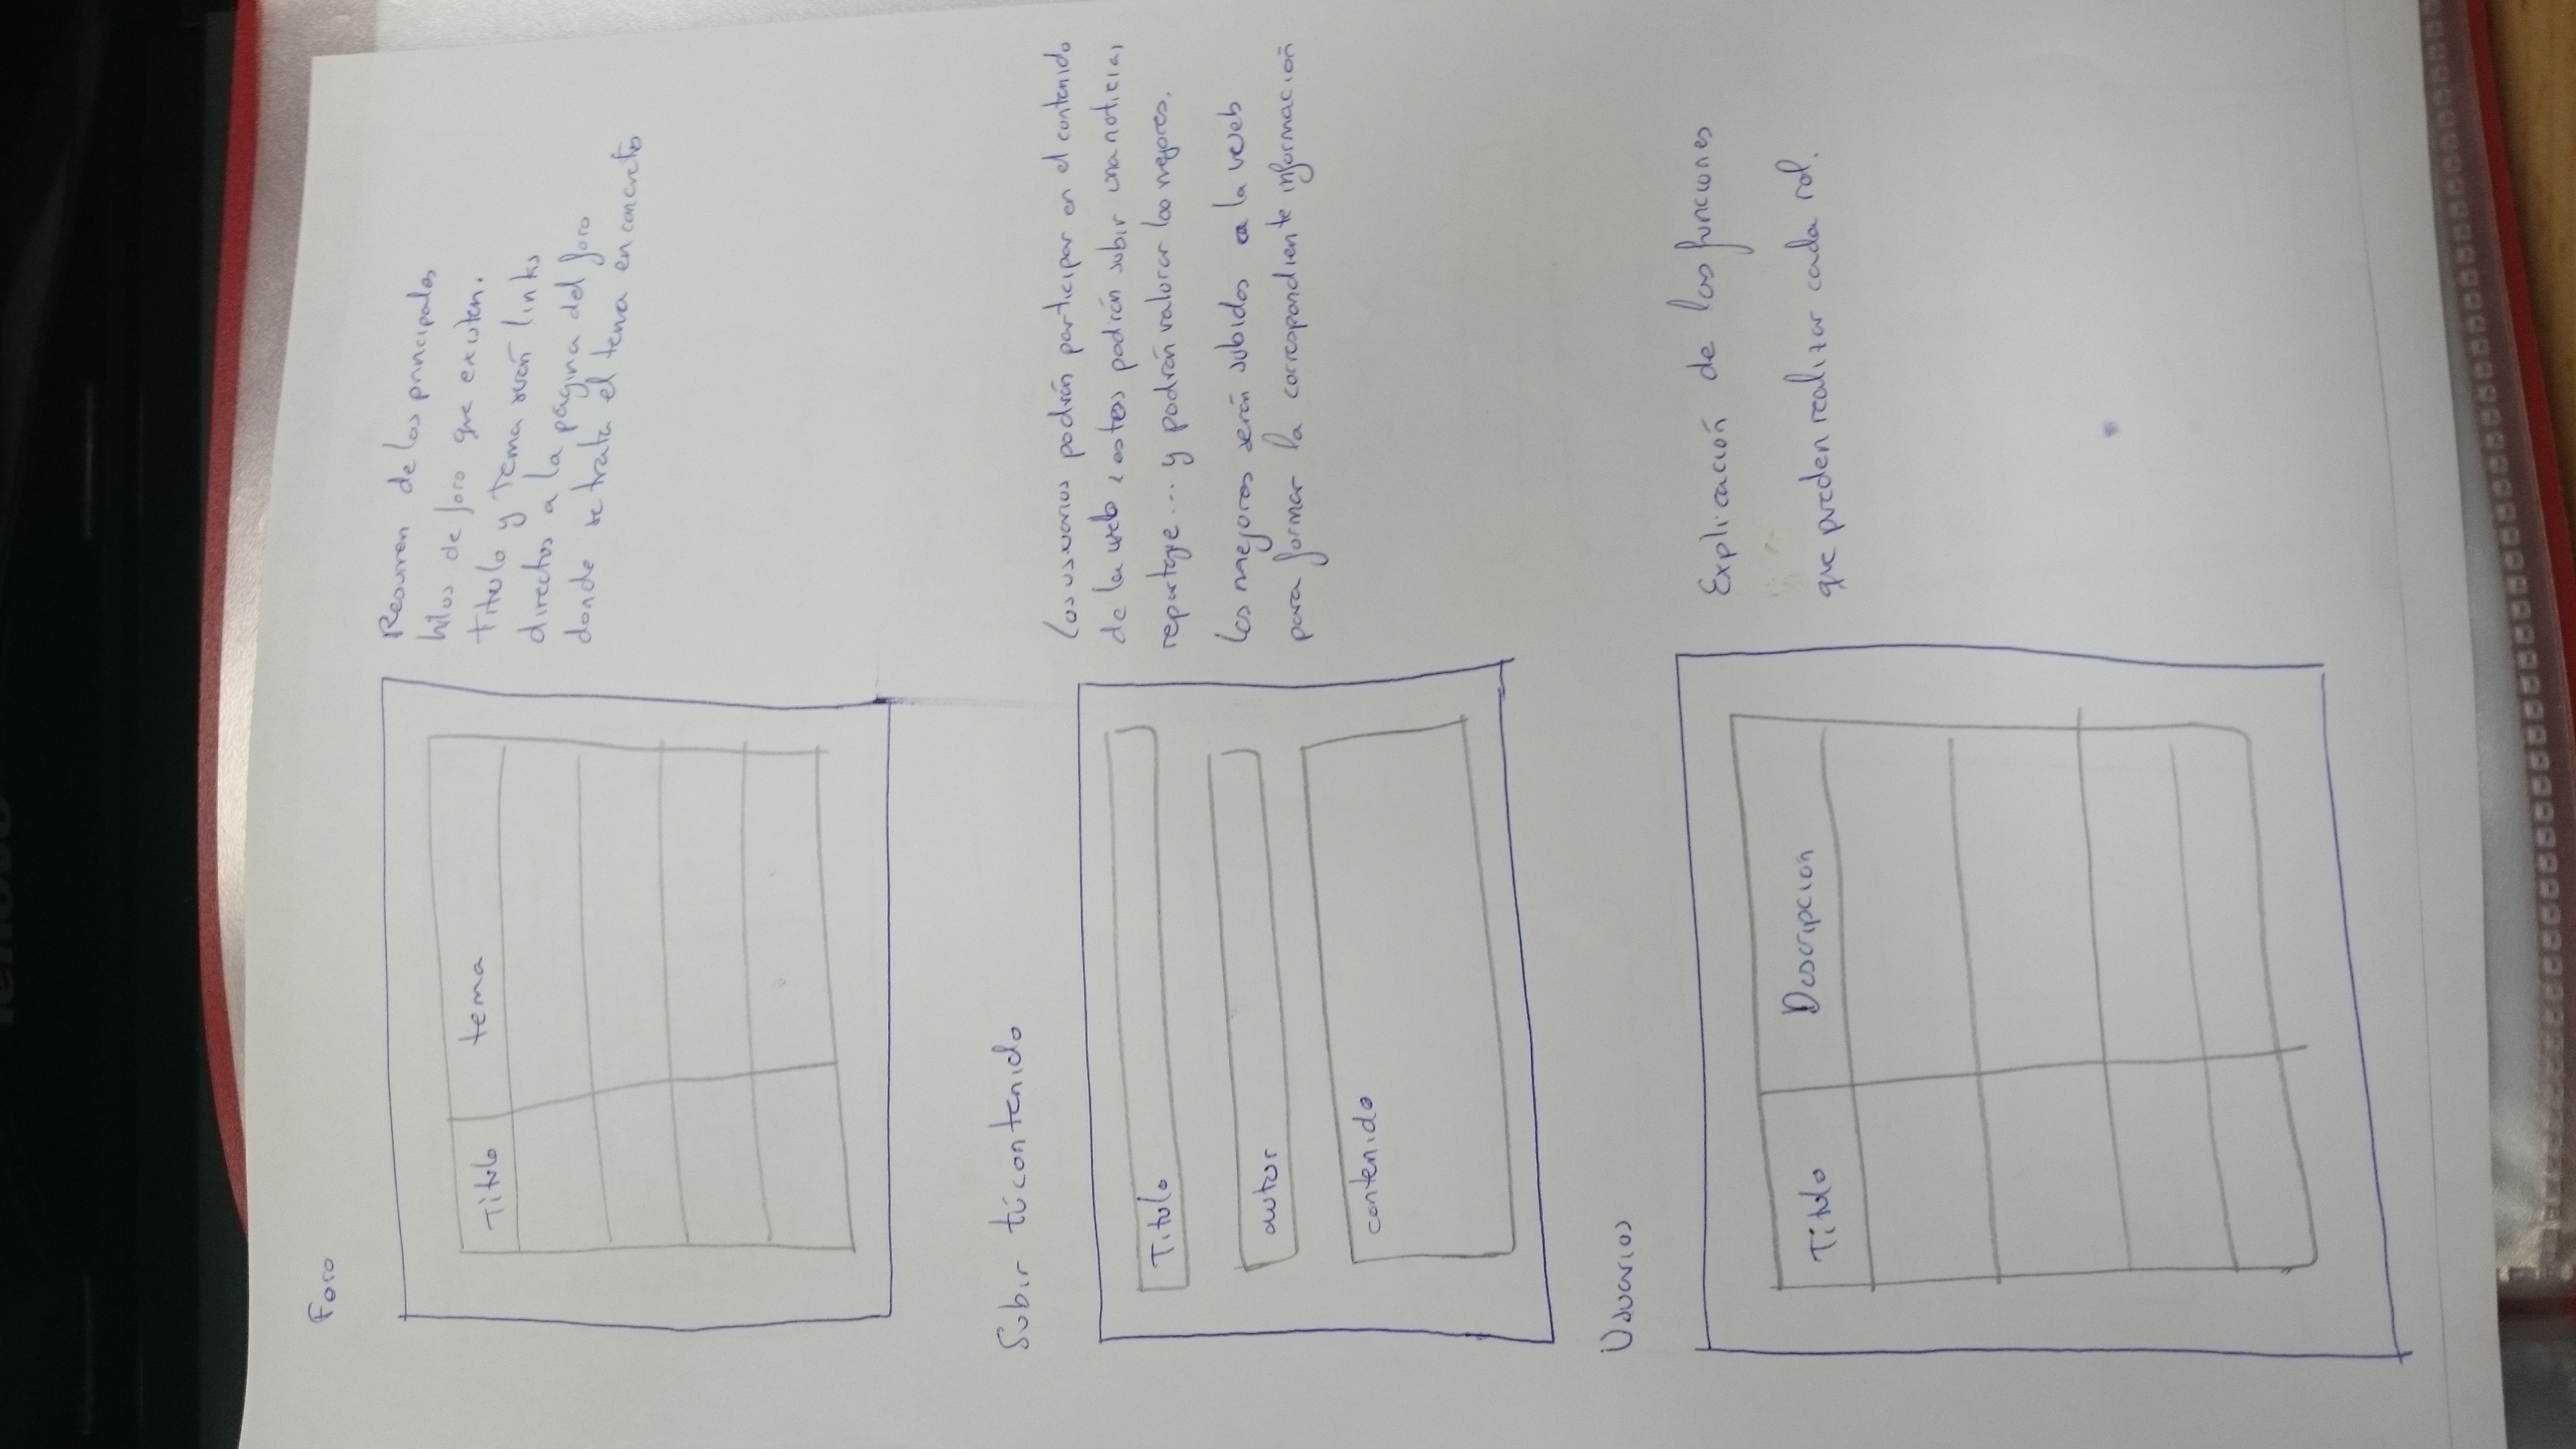 lenovo
Foro
Titulo tema
Resumen de los principales
hilos de foro que existen.
Titulo y Tema serán links
directos a la página del foro
donde se trata el tema en concreto
Subir tú contenido
Titulo
autor
contenido
Los usuarios podrán participar en el contenido
de la web, estos podrán subir una noticia,
reportage... y podrán valorar los mejores.
Los mejores serán subidos a la web
para formar la correspondiente información
Usuarios
Titulo Descripcion
Explicación de las funciones
que pueden realizar cada rol.